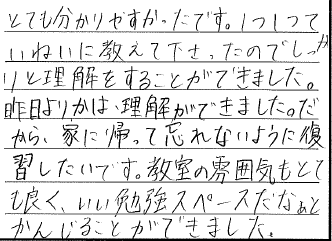 とても分かりやすかったです。1つ1つて
いねいに教えて下さったのでしっか
りと理解をすることができました。
昨日よりかは、理解ができました。だ
から、家に帰って忘れないように復
習したいです。教室の雰囲気もとて
も良く、いい勉強スペースだなぁと
かんじることができました。